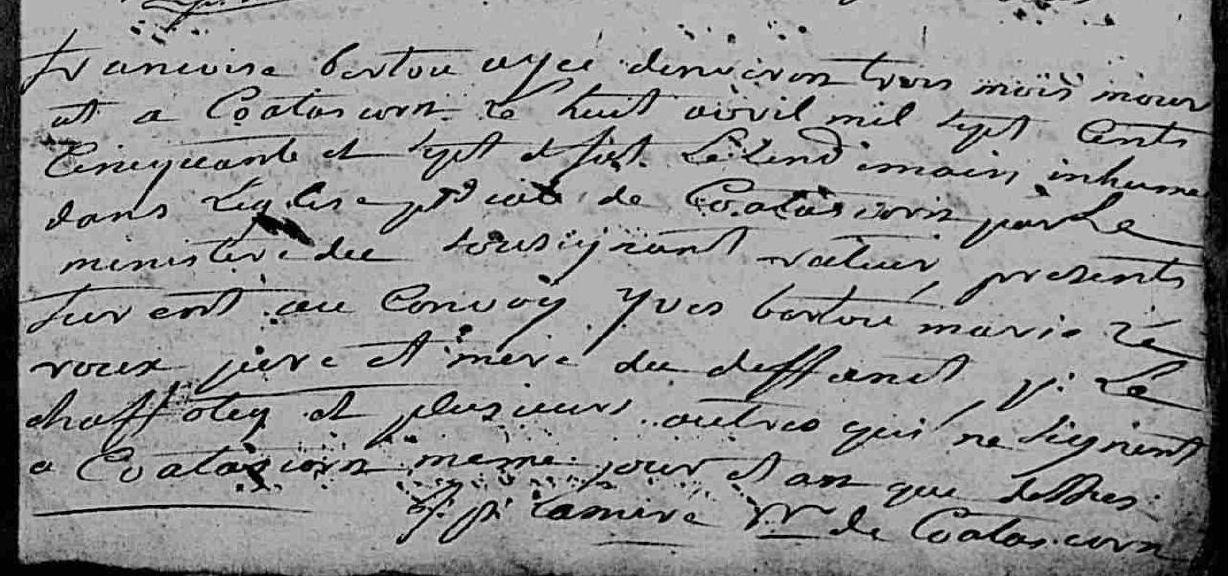 francoise bertou ageé denviron trois mois mour
ut a Coatascorn le huit avvil mil sept Cents
Cinquante et sept et fut Le lendimain inhume
dans Leglise de Coatascorn par Le
ministere du sousignant presents
furent au Convoy Yves bertou marie Le
roux pere et mere du deffunct y. Le
chaffotec et plusieurs autres qui ne signent
a Coatascorn meme jour et an que dessus
de Coatascorn